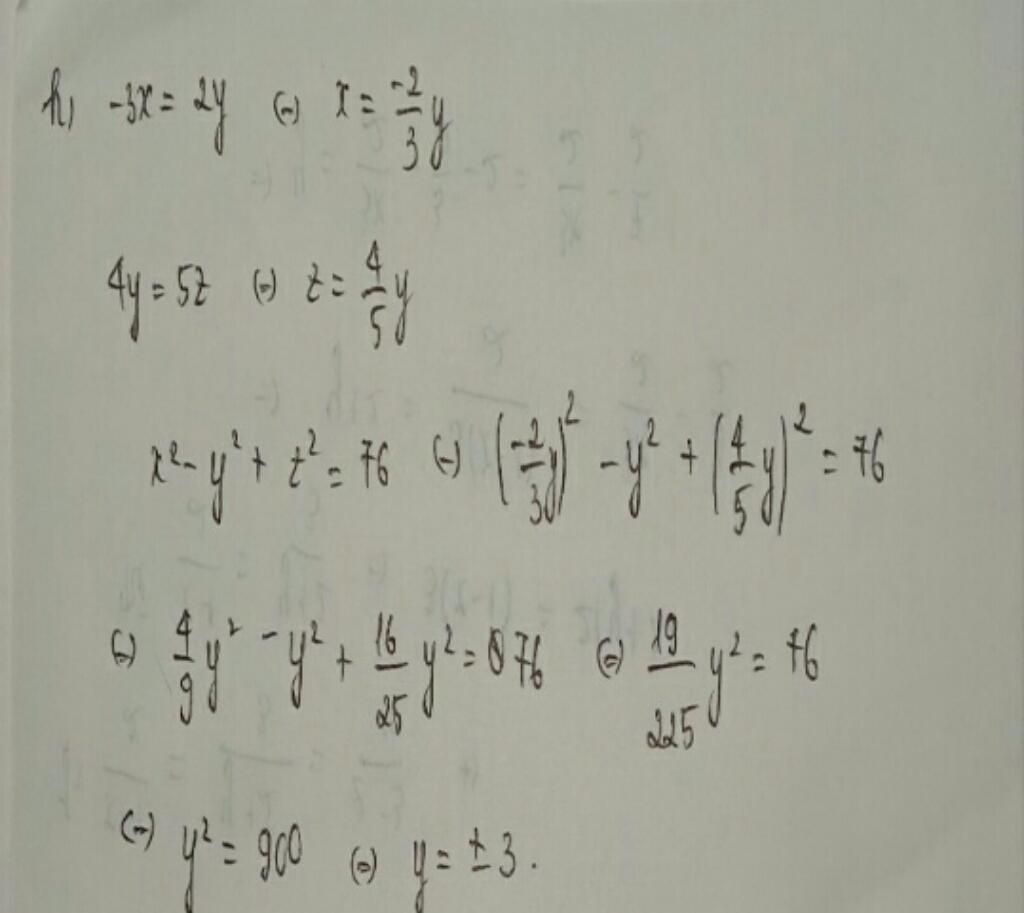 h) -3x = 2y (=) x = -2/3 y
4y = 5z (=) z = 4/5 y
x² - y² + z² = 76 (=) (-2/3 y)² - y² + (4/5 y)² = 76
(=) 4/9 y² - y² + 16/25 y² = 76 (=) 19/225 y² = 76
(=) y² = 900 (=) y = ± 3.